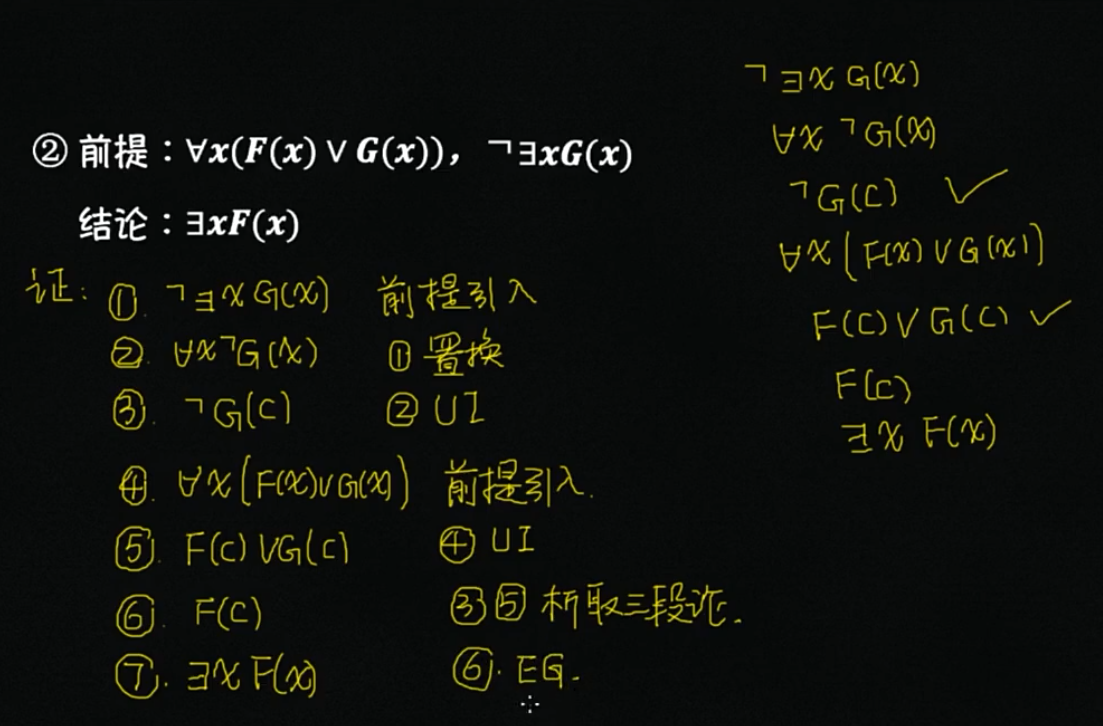 ② 前提：∀x(F(x) ∨ G(x))，¬∃xG(x)
结论：∃xF(x)
证：①. ¬∃xG(x) 前提引入
②. ∀x¬G(x) ①置换
③. ¬G(c) ② UI
④. ∀x(F(x)∨G(x)) 前提引入.
⑤. F(c)∨G(c) ④ UI
⑥. F(c) ③⑤ 析取三段论.
⑦. ∃xF(x) ⑥. EG.
¬∃xG(x)
∀x¬G(x)
¬G(c) ✓
∀x(F(x)∨G(x))
F(c)∨G(c) ✓
F(c)
∃xF(x)